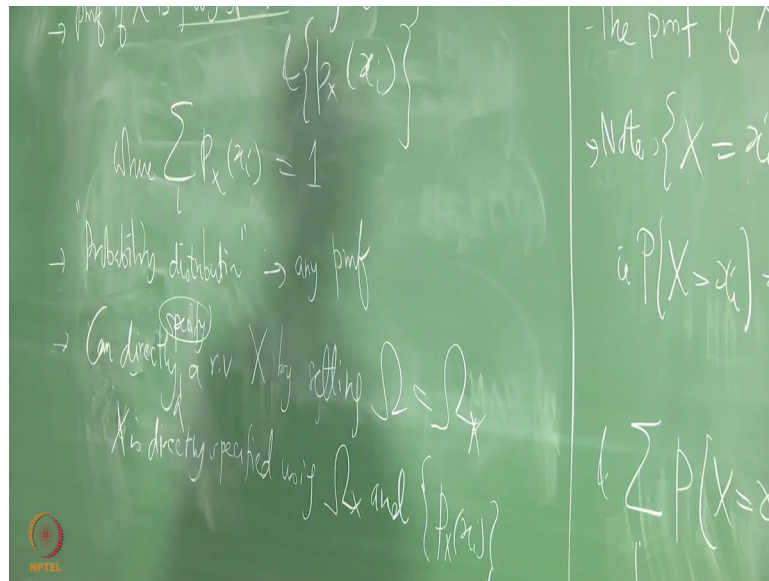 → pmf if X is
& {p_X(x_i)}
where ∑_i P_X(x_i) = 1
→ "Probability distribution" → any pmf
→ Can directly specify a r.v X by setting Ω = Ω_X
X is directly specified using Ω_X and {P_X(x_i)}
- The pmf if
→ Note: {X = x_i
ie P{X = x_i} =
& ∑ P(X = x
NPTEL